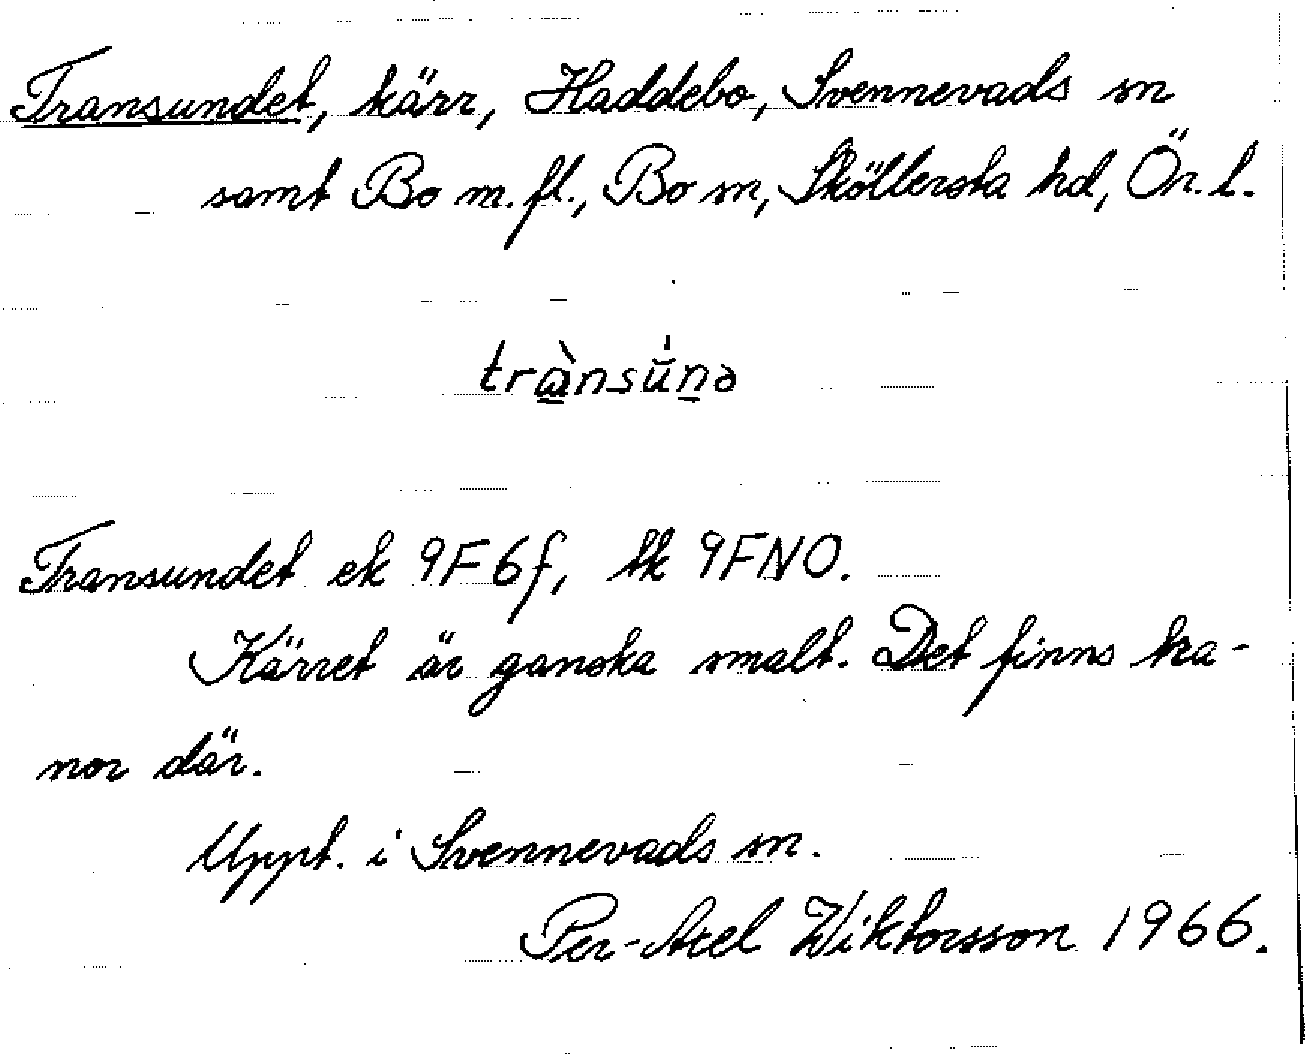 Transundet, kärr, Haddebo, Svennevads sn
samt Bo m.fl., Bo sn, Sköllersta hd, Ör. l.
trànsúnə
Transundet ek 9F6f, tk 9FNO.
Kärret är ganska smalt. Det finns tra-
nor där.
Uppt. i Svennevads sn.
Per-Axel Wiktorsson 1966.